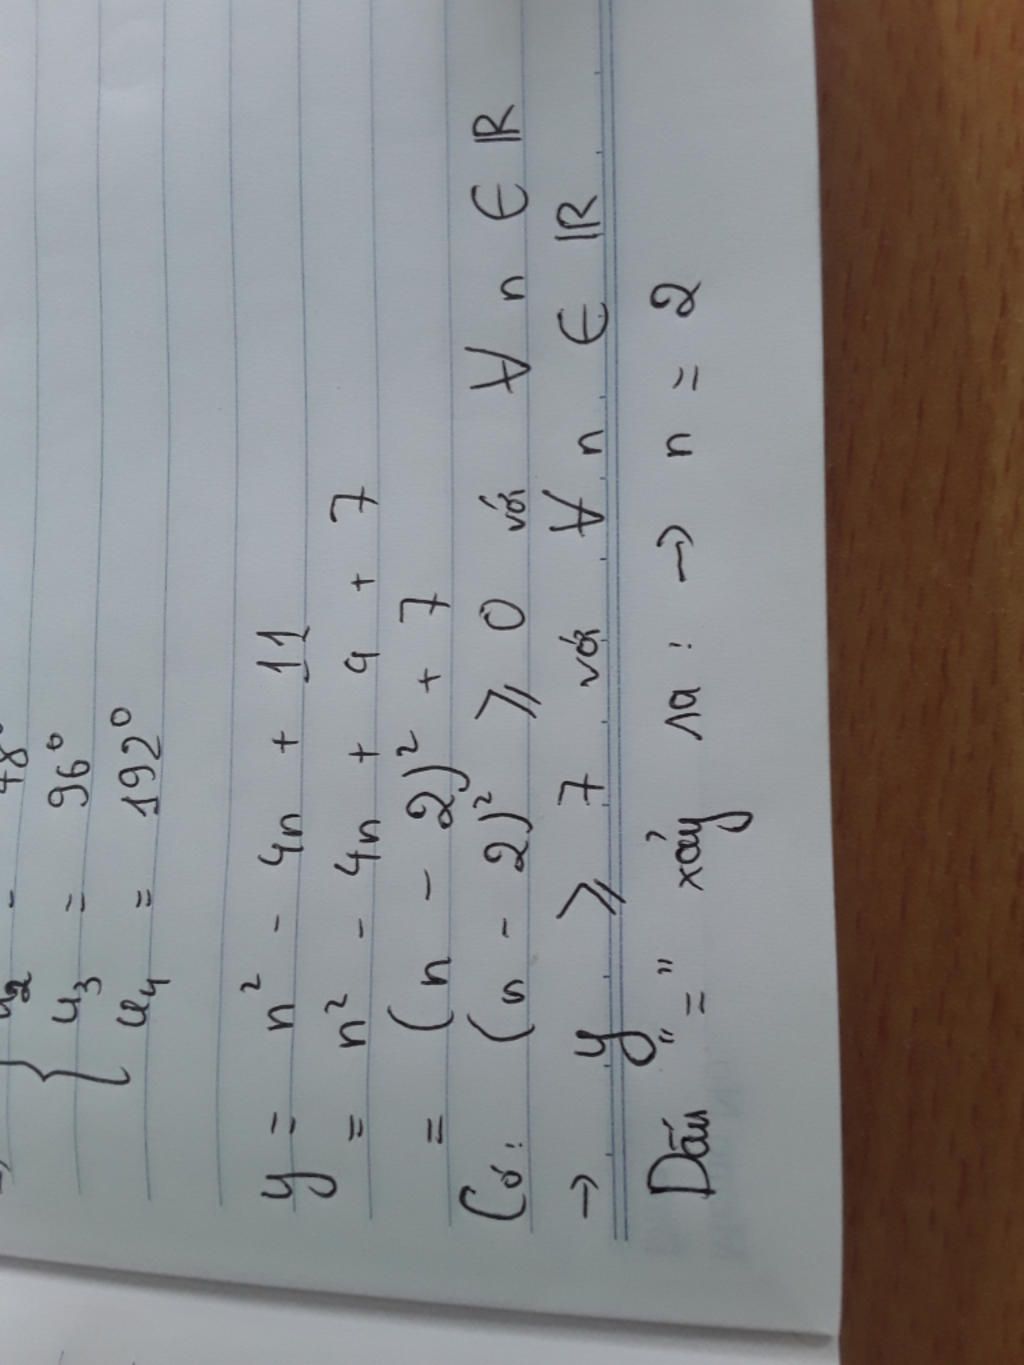 u₂ = 48°
u₃ = 96°
u₄ = 192°
y = n² - 4n + 11
= n² - 4n + 4 + 7
= (n - 2)² + 7
Có: (n - 2)² ⩾ 0 với ∀ n ∈ ℝ
→ y ⩾ 7 với ∀ n ∈ ℝ
Dấu "=" xảy ra: → n = 2